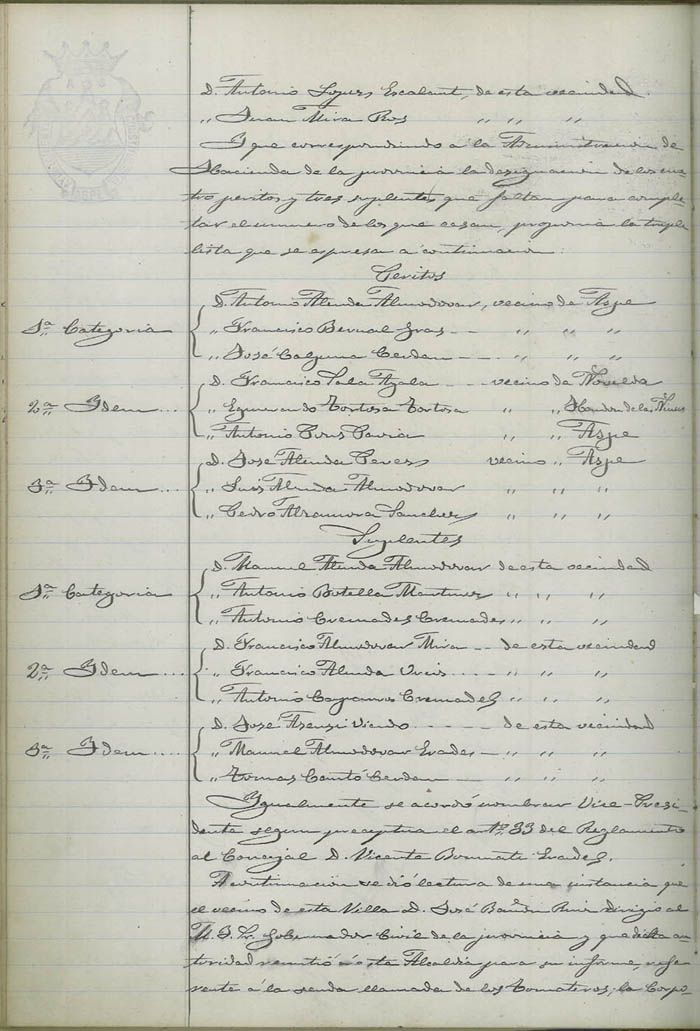 D. Antonio Escalant, de esta vecindad.
" Juan Mira Pros " " "
Y que correspondiendo á la Administracion de
Hacienda de la provincia la designacion de los cua-
tro peritos y tres suplentes que faltan para comple-
tar el numero de los que cesan, proponia la triple
lista que se espresa a continuacion:
Peritos
D. Antonio Alenda Almodovar, vecino de Aspe
1ª Categoria " Francisco Bernal Gras " " "
" José Calpena Cerdan " " "
D. Francisco Sala Azala vecino de Novelda
2ª Idem " Tortosa Tortosa " " Hondon de las Nieves
" Antonio Pavia " " Aspe
D. José Alenda Perez vecino " Aspe
3ª Idem " Luis Alenda Almodovar " " "
" Pedro Altamira Sanchez " " "
Suplentes
D. Manuel Alenda Almodovar de esta vecindad
1ª Categoria " Antonio Botella Martinez " " "
" Antonio Cremades Cremades " " "
D. Francisco Almodovar Mira de esta vecindad
2ª Idem " Francisco Alenda " " "
" Antonio Cremades " " "
D. José Asensi de esta vecindad
3ª Idem " Manuel Almodovar Erades " " "
" Tomas Cantó Cerdan " " "
Igualmente se acordó nombrar Vice-Presi-
dente segun preceptua el artº 33 del Reglamento
al Concejal D. Vicente Bonmati Erades.
A continuacion se dió lectura de una instancia que
el vecino de esta Villa D. José dirigio al
M. I. Sr. Gobernador Civil de la provincia y que dicha au-
toridad remitió á esta Alcaldia para su informe, refe-
rente á la senda llamada de los Tomateros; la Corpo-